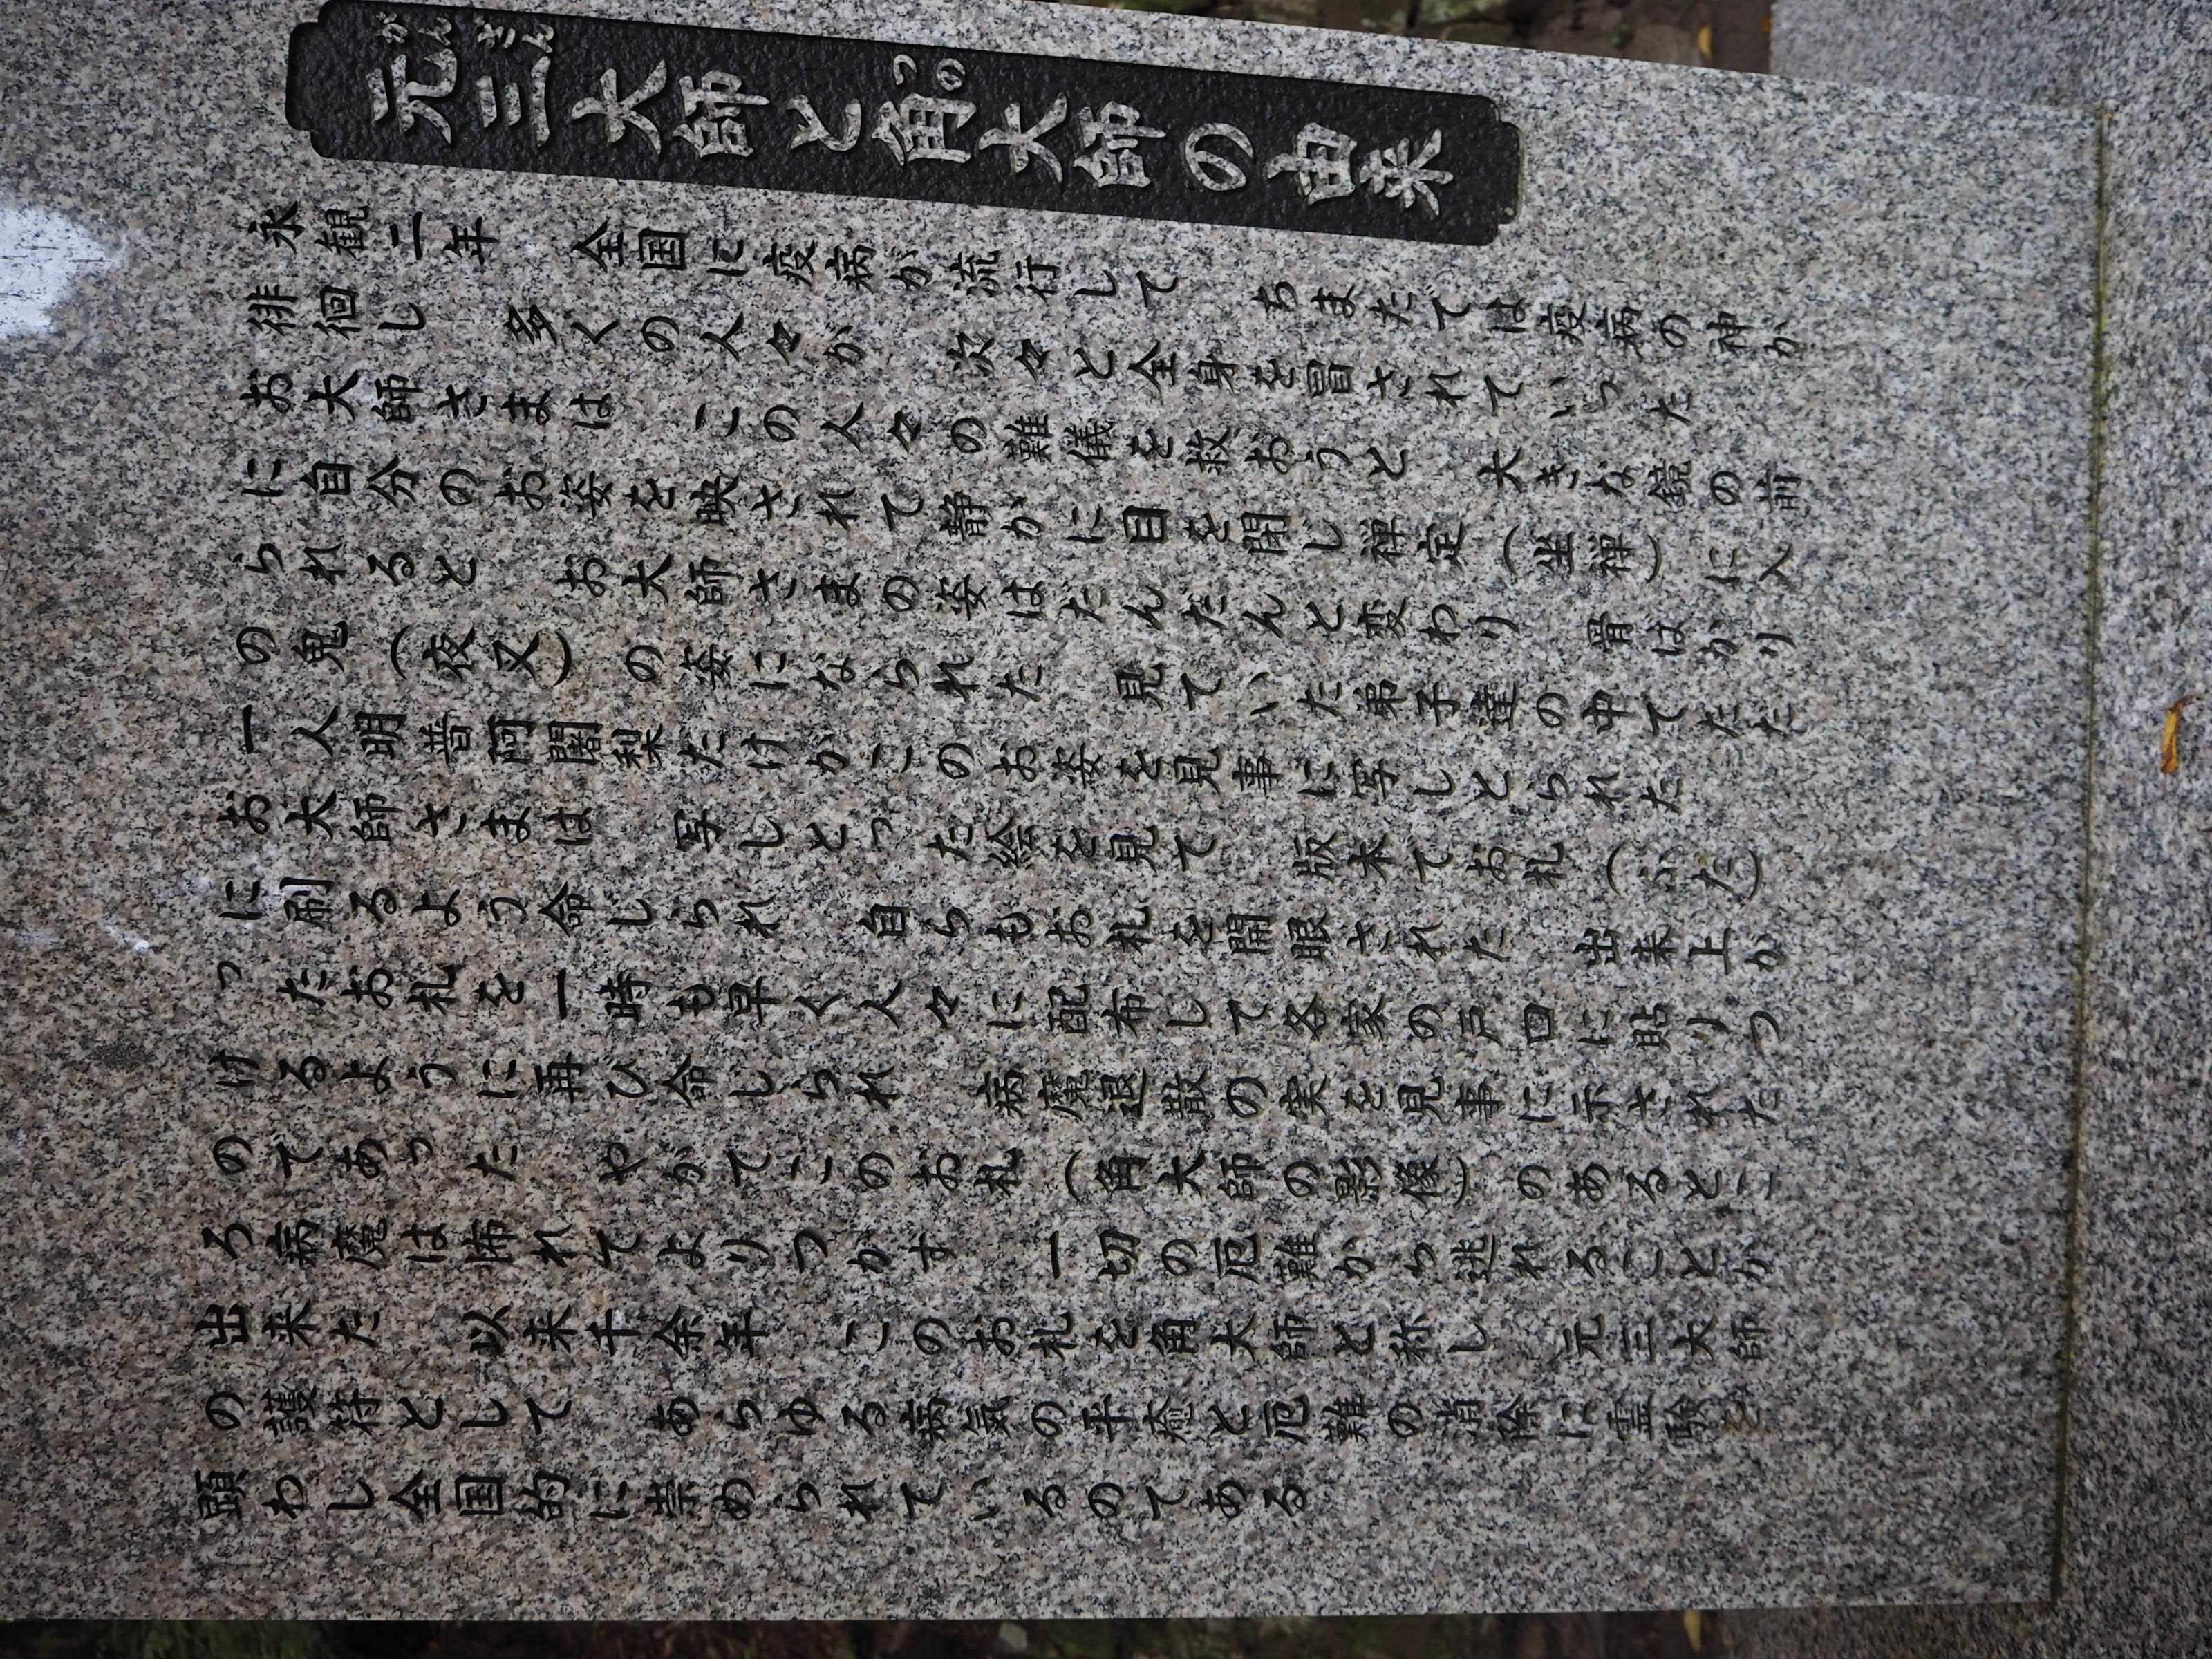 元三大師と角大師の由来
がんさん
つの
永観二年　全国に疫病が流行して　ちまたでは疫病の神が
徘徊し　多くの人々が　次々と全身を冒されていった
お大師さまは　この人々の難儀を救おうと　大きな鏡の前
に自分のお姿を映されて静かに目を閉じ禅定（坐禅）に入
られると　お大師さまの姿はだんだんと変わり　骨ばかり
の鬼（夜叉）の姿になられた　見ていた弟子達の中でただ
一人明普阿闍梨だけがこのお姿を見事に写しとられた
お大師さまは　写しとった絵を見て　版木でお札（ふだ）
に刷るよう命じられ　自らもお札を開眼された　出来上が
ったお札を一時も早く人々に配布して各家の戸口に貼りつ
けるように再び命じられ　病魔退散の実を見事に示された
のであった　やがてこのお札（角大師の影像）のあるとこ
ろ病魔は怖れてよりつかず　一切の厄難から逃れることが
出来た　以来千余年　このお札を角大師と称し　元三大師
の護符として　あらゆる病気の平癒と厄難の消除に霊験を
顕わし全国的に崇められているのである